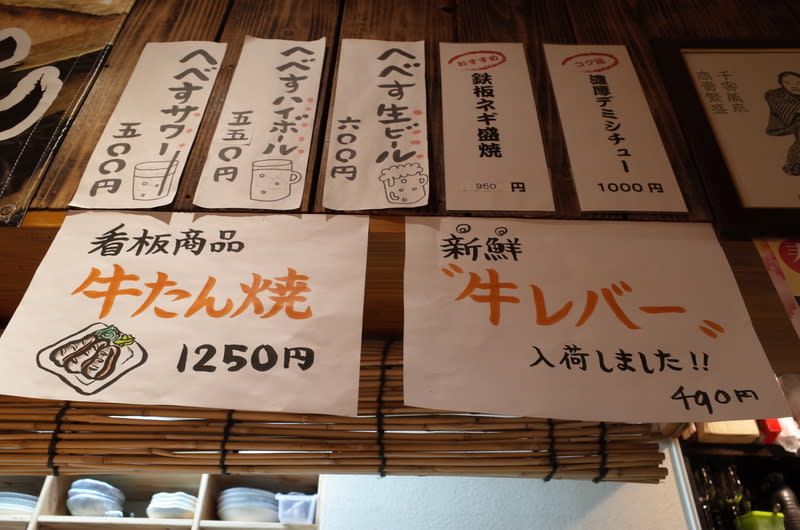 へべすサワー
五〇〇円
へべすハイボール
五五〇円
へべす生ビール
六〇〇円
おすすめ
鉄板ネギ盛焼
950 円
コク旨
濃厚デミシチュー
1000円
千客萬来
商売繁盛
看板商品
牛たん焼
1250円
新鮮
〝牛レバー〟
入荷しました!!
490円